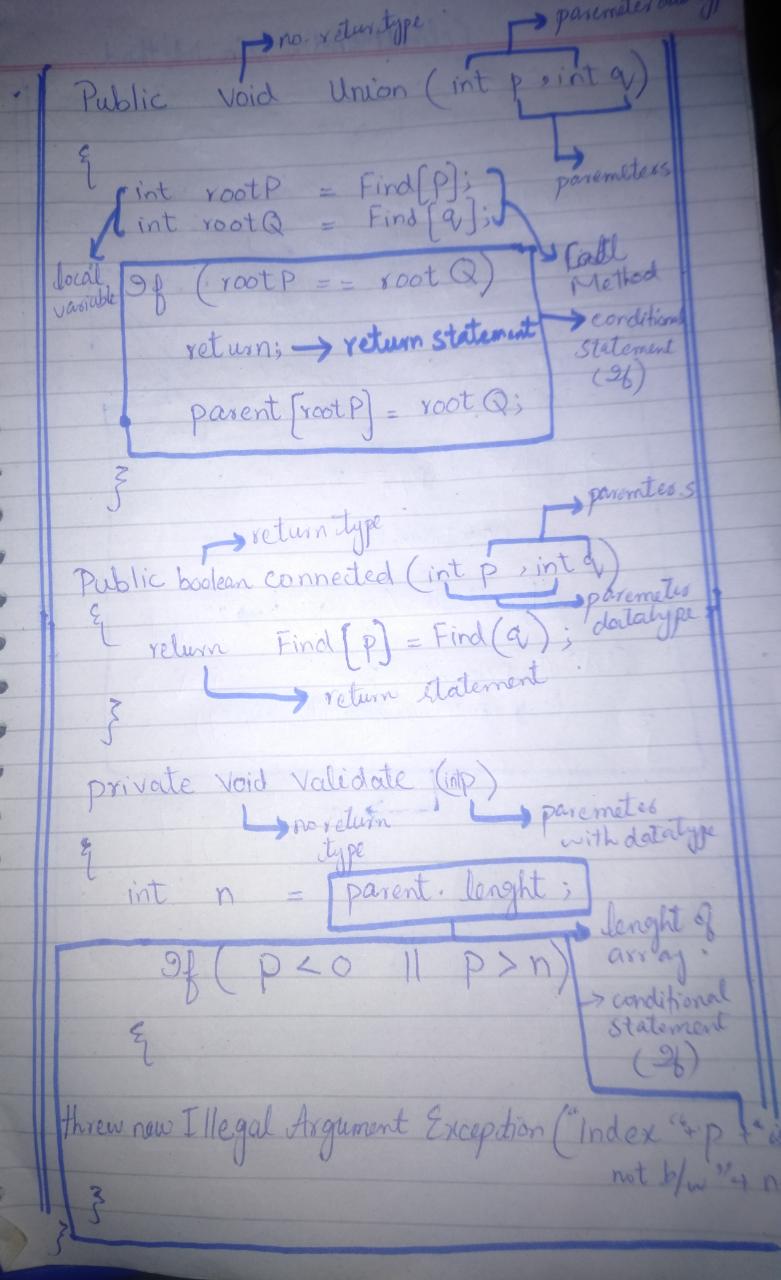 no return type
Public void Union (int p, int q)
paremeters
{
int rootP = Find[p];
int rootQ = Find[q];
local variable
Call Method
If (rootP == rootQ)
return; → return statement
conditional statement (If)
parent[rootP] = rootQ;
}
return type
Public boolean connected (int p, int q)
datatype
{
return Find[p] = Find(q);
return statement
}
private void Validate (int p)
no return type
with datatype
{
int n = parent.lenght;
lenght of array.
If( p<0 || p>n)
conditional statement (If)
{
threw new Illegal Argument Exception ("Index "+p+"
not b/w "+ n
}
}